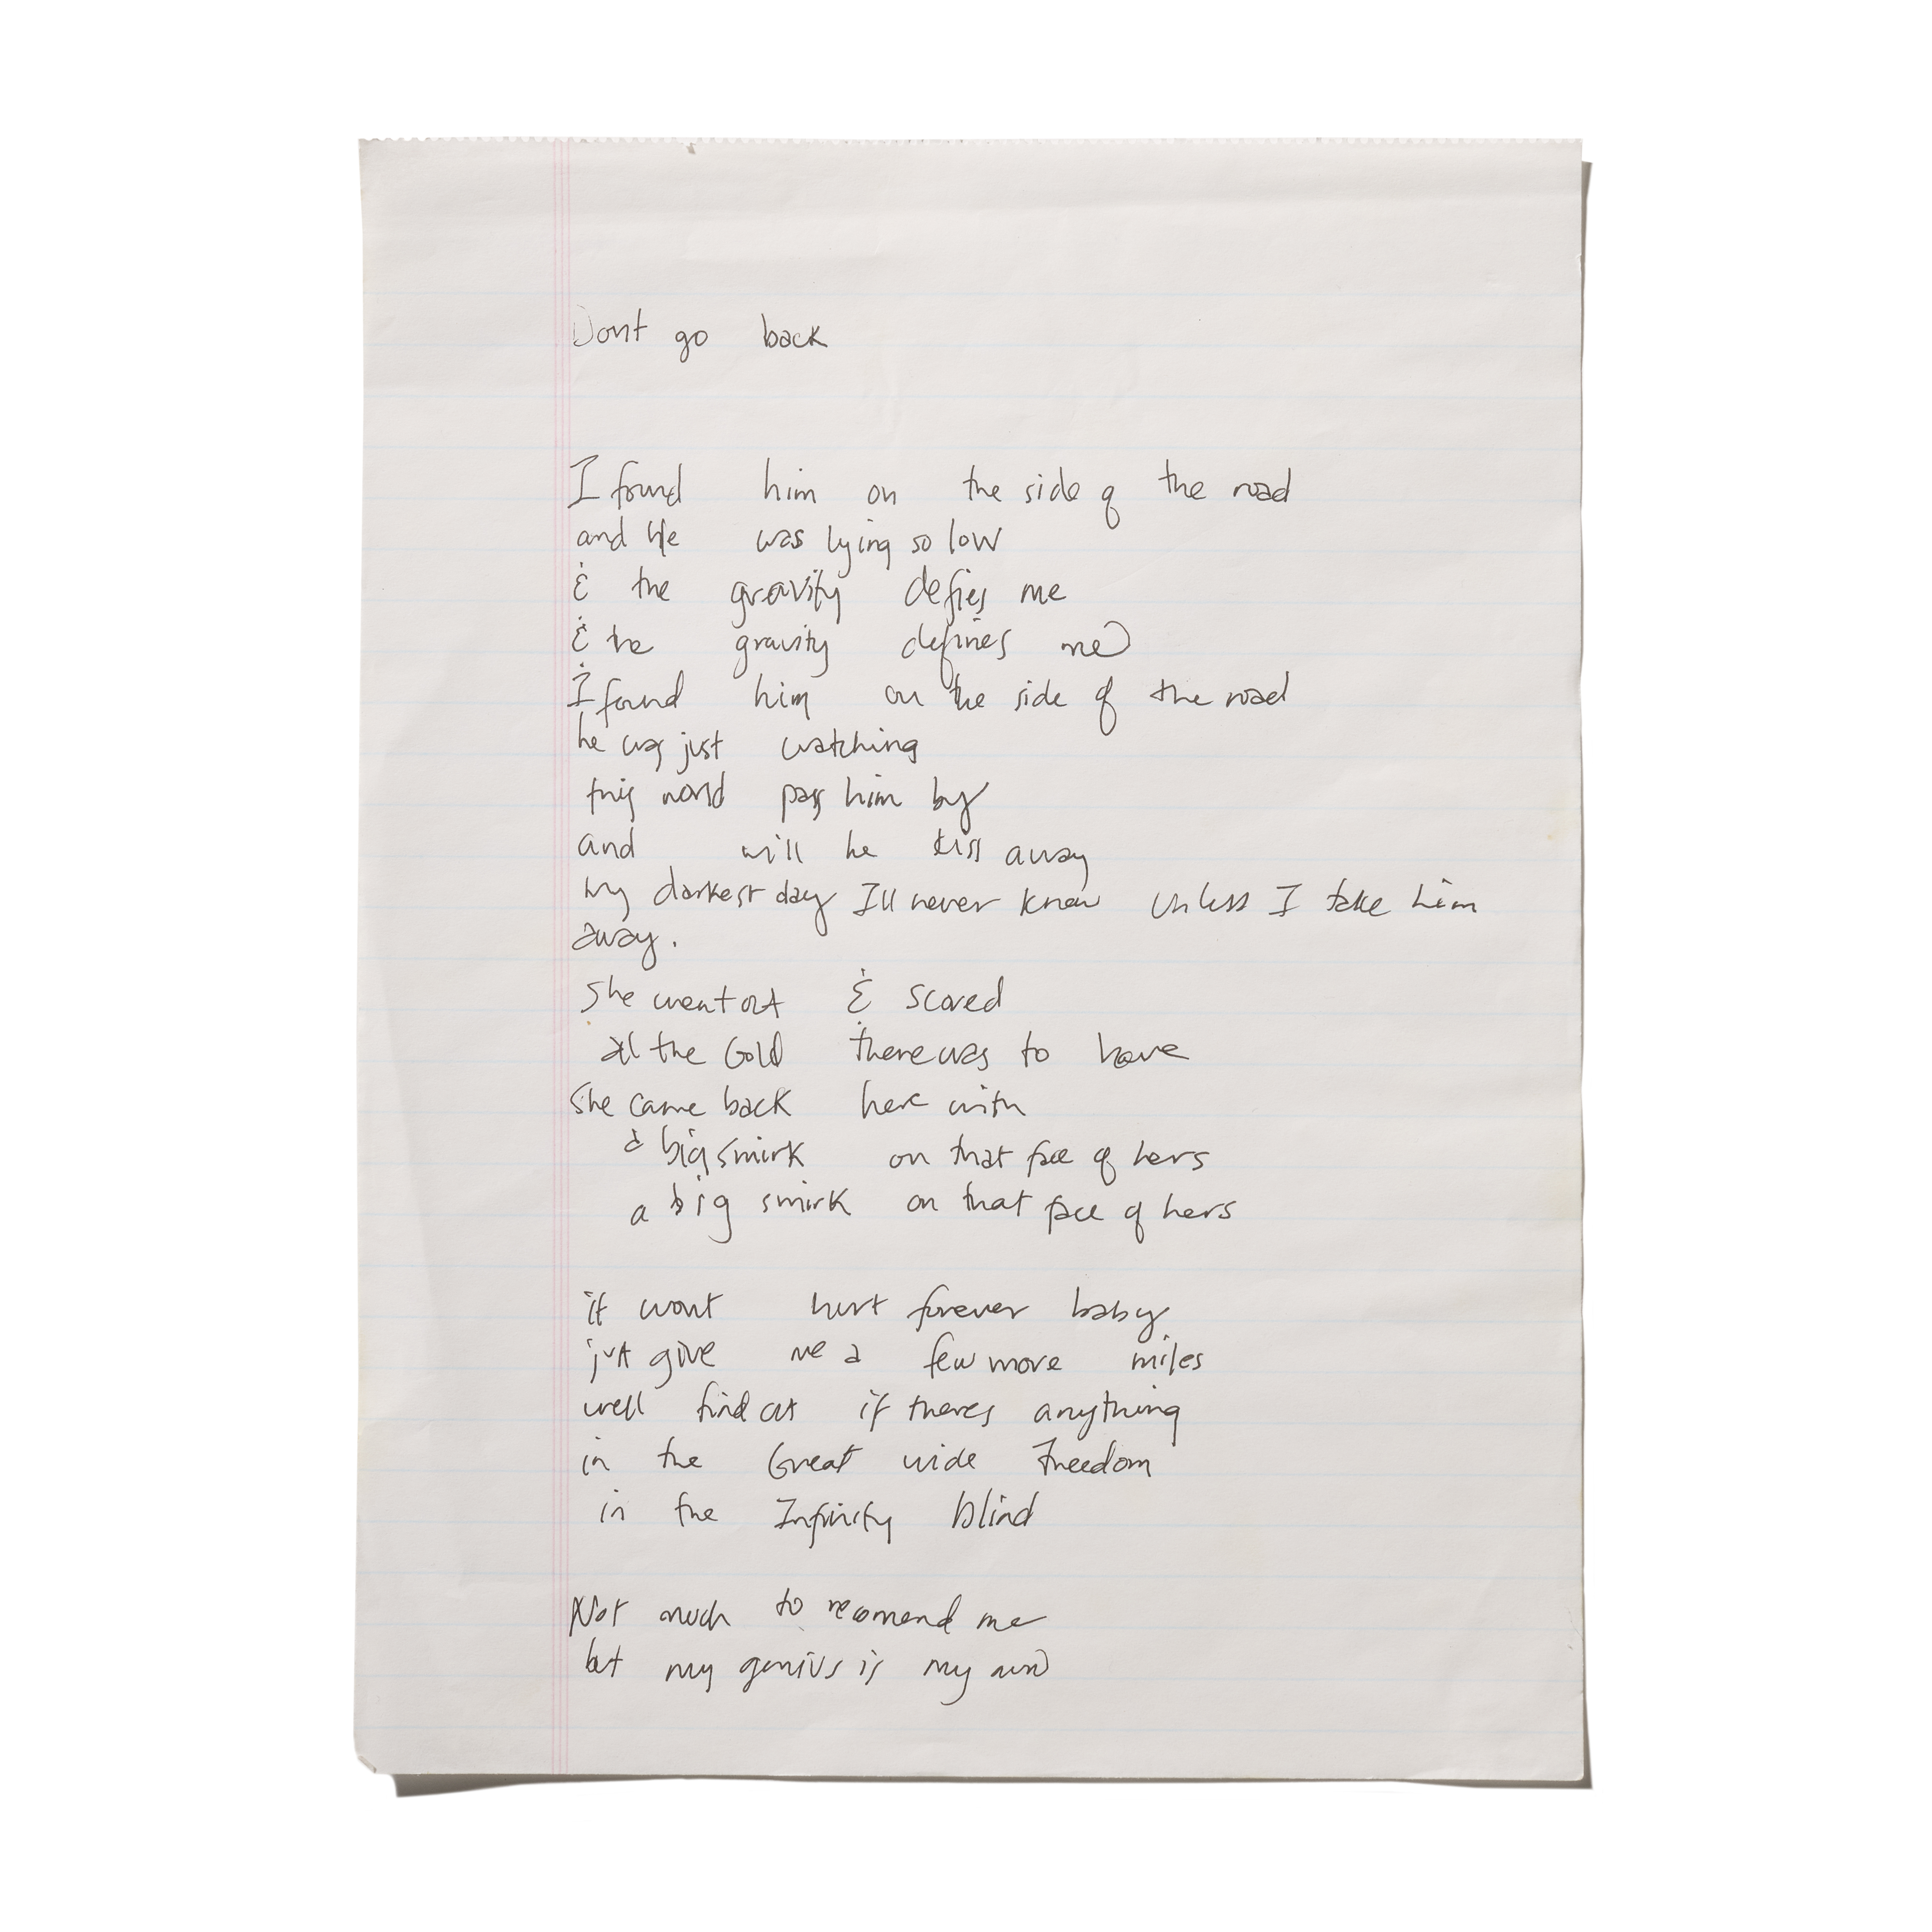 Dont go back
I found him on the side of the road
and he was lying so low
& the gravity defies me
& the gravity defines me
I found him on the side of the road
he was just watching
this world pass him by
and will he kiss away
my darkest day Ill never know unless I take him
away.
She went out & scored
all the Gold there was to have
She came back here with
a big smirk on that face of hers
a big smirk on that face of hers
it wont hurt forever baby
just give me a few more miles
well find out if theres anything
in the Great wide Freedom
in the Infinity blind
Not much to recomend me
but my genius is my own